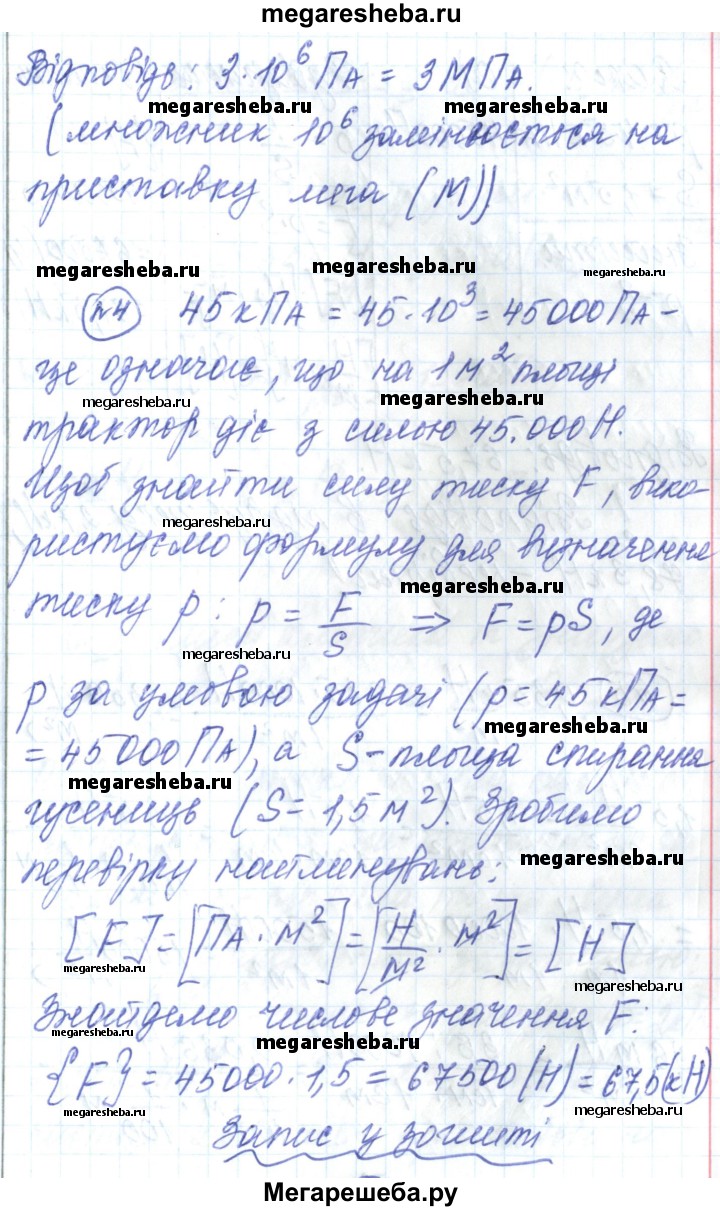 megaresheba.ru
Відповідь: 3·10⁶ Па = 3 МПа.
megaresheba.ru megaresheba.ru
(множник 10⁶ замінюється на
приставку мега (М))
megaresheba.ru megaresheba.ru megaresheba.ru
n4 45 кПа = 45·10³ = 45000 Па –
це означає, що на 1 м² площі
megaresheba.ru megaresheba.ru
трактор діє з силою 45.000 Н.
Щоб знайти силу тиску F, вико-
megaresheba.ru
ристуємо формулу для визначення
megaresheba.ru
тиску p: p = F/S ⇒ F = pS, де
megaresheba.ru
p за умовою задачі (p = 45 кПа =
megaresheba.ru
= 45000 Па), а S – площа спирання
megaresheba.ru
гусениць (S = 1,5 м²). Зробимо
megaresheba.ru
перевірку найменувань:
[F] = [Па · м²] = [Н/м² · м²] = [Н]
megaresheba.ru megaresheba.ru
Знайдемо числове значення F:
megaresheba.ru
{F} = 45000·1,5 = 67500 (Н) = 67,5 (кН)
megaresheba.ru megaresheba.ru megaresheba.ru
Запис у зошиті
Мегарешеба.ру